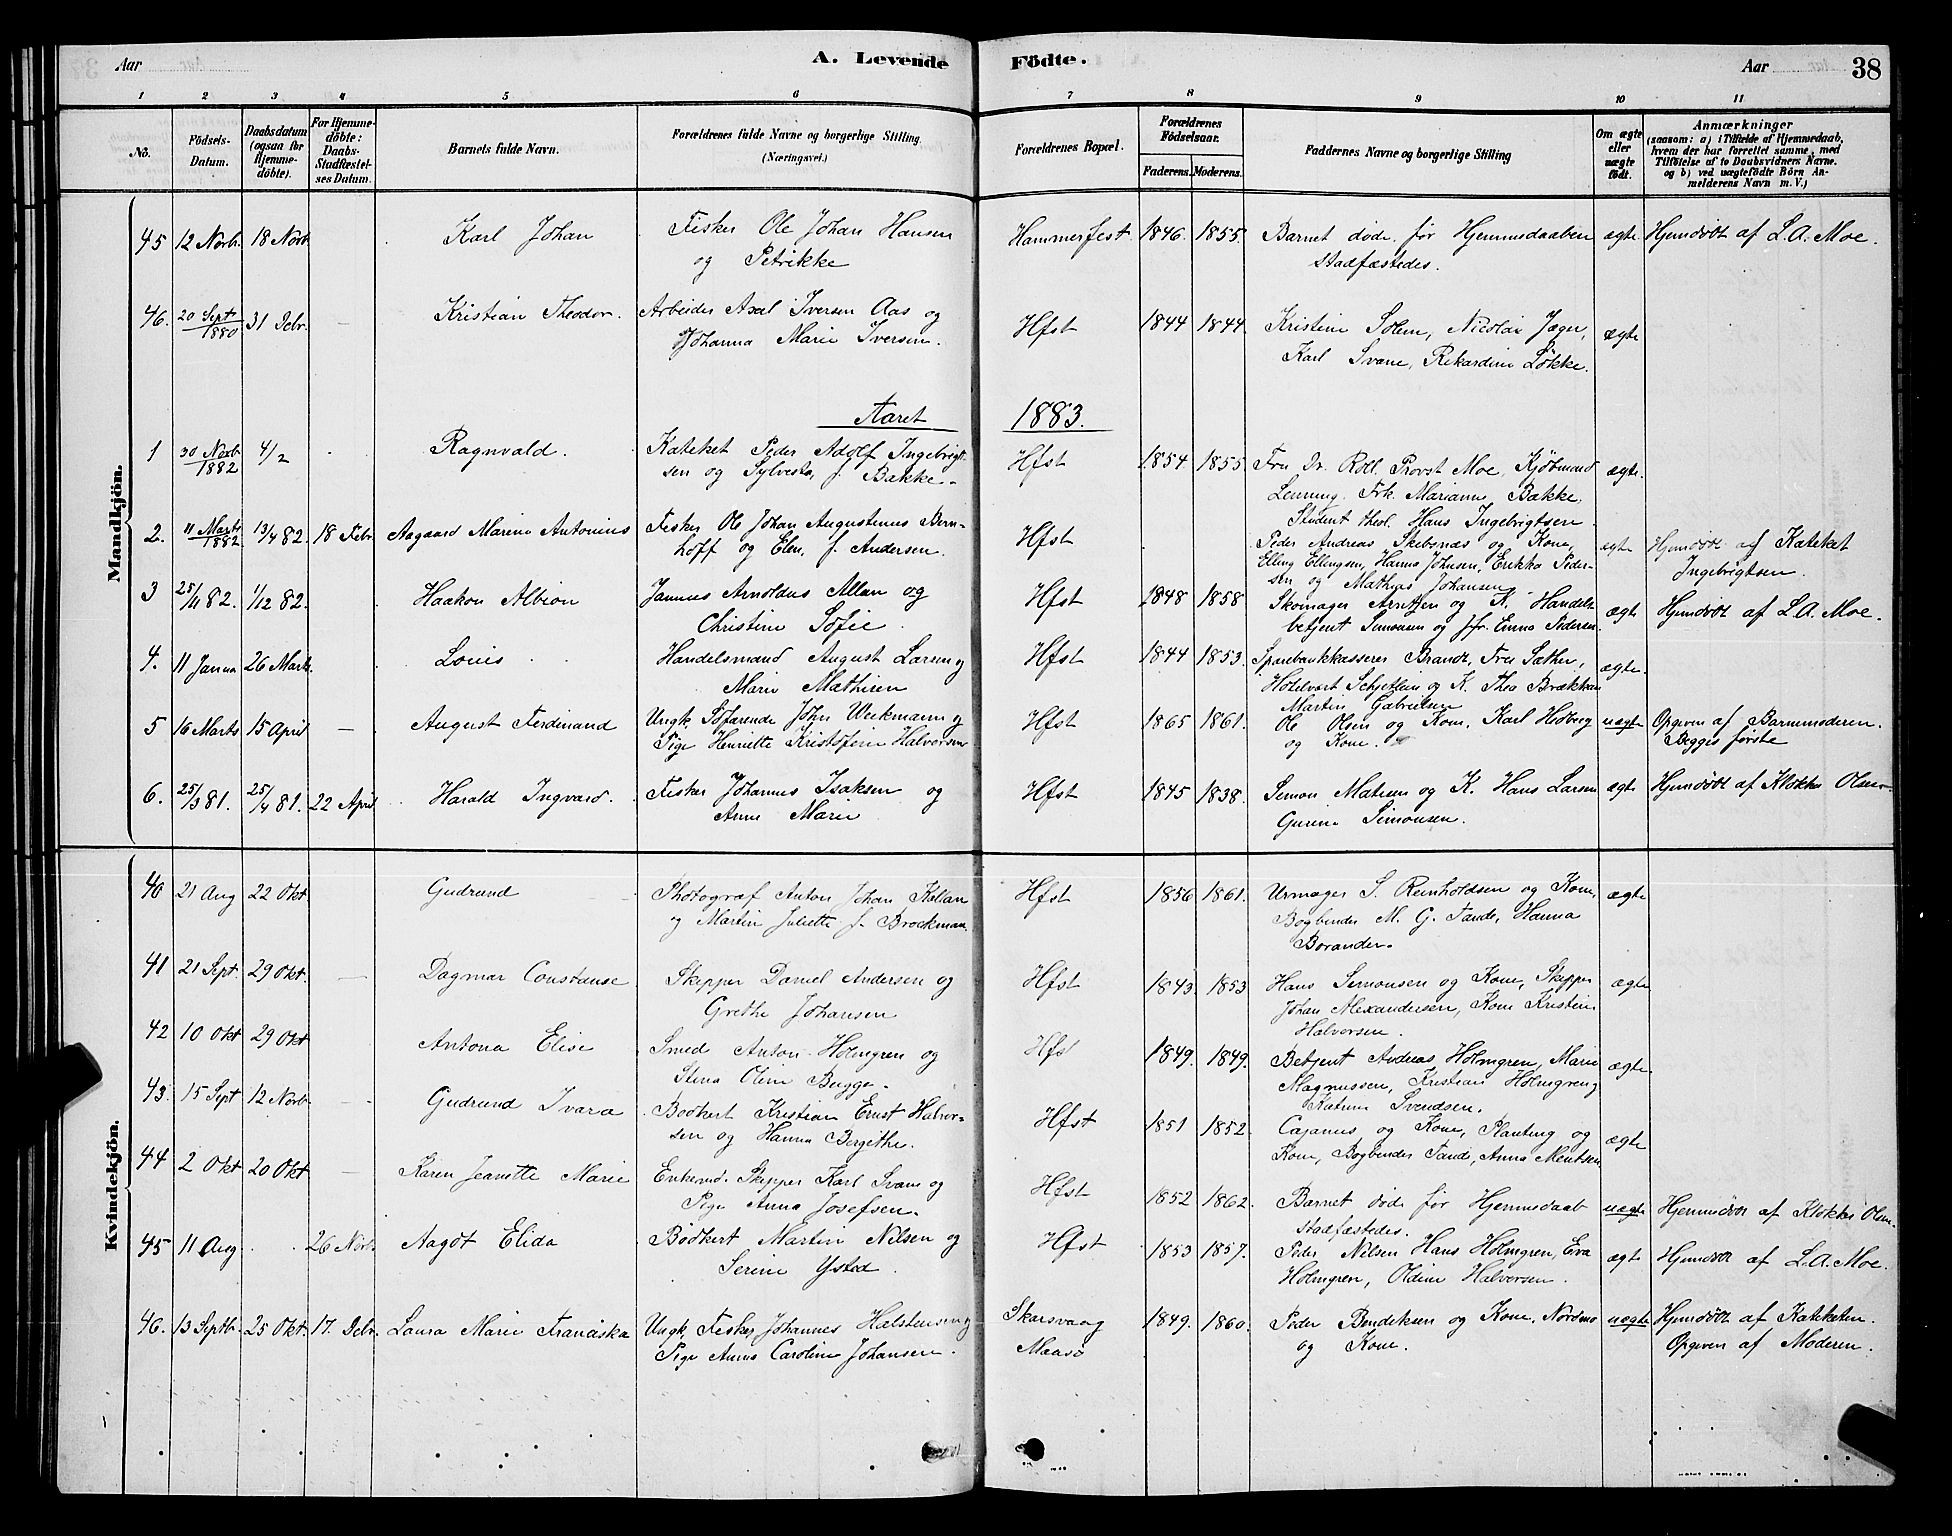 Aar
A. Levende
Födte.
Aar
38
1 2 3 4 5 6 7 8 9 10 11
No.
Födsels-
Datum.
Daabsdatum
(ogsaa for
Hjemme-
döbte).
For Hjemme-
döbte:
Daabs-
Stadfæstel-
ses Datum.
Barnets fulde Navn.
Forældrenes fulde Navne og borgerlige Stilling
(Næringsvei.)
Forældrenes Bopæl.
Forældrenes
Födselsaar.
Faderens. Moderens.
Faddernes Navne og borgerlige Stilling
Om ægte
eller
uægte
födt.
Anmærkninger
(saasom: a) i Tilfælde af Hjemmedaab,
hvem der har forrettet samme, med
Tilföielse af to Daabsvidners Navne.
og b) ved uægtefödte Börn An-
melderens Navn m. V.)
Mandkjön.
45 12 Novb. 18 Novb Karl Johan Fisker Ole Johan Hansen Hammerfest. 1846. 1855. Barnet døde før Hjemmedaaben ægte Hjemdøbt af L.A. Moe.
og Petrikke stadfæstedes.
46. 20 Sept/1880 31 Decbr. — Kristian Theodor. Arbeider Axel Iversen Aas og Hfst 1844 1844. Kristine Solem, Nicolai Jæger, ægte
Johanna Marie Iversen. Karl Svane, Rikardine Løkke.
Aaret 1883.
1 30 Novb/1882 4/2 Ragnvald. Kateket Peder Adolf Ingebrigt- Hfst 1854 1855. Fru Dr. Roll. Provst Moe, Kjøbmand ægte.
sen og Sylvesta f. Bakke. Lenning. Frk. Marianne Bakke.
Student theol. Hans Ingebrigtsen
2. 11 Marts/1882 13/4 82. 18 Febr. Aagaard Marino Antonius Fisker Ole Johan Augustinus Bern- Hfst Peder Andreas Skebsnæs og Kone, ægte Hjemdøbt af Kateket
hoff og Elen f. Andersen. Elling Ellingsen, Hanna Johnsen, Erikka Peder- Ingebrigtsen.
sen og Mathias Johansen
3 25/11 82. 1/12 82. Haakon Albion Jannus Arnoldus Allan og Hfst 1848 1858. Skomager Arntzen og K. Handels- ægte Hjemdøbt af L.A. Moe.
Christine Sofie. betjent Simonsen og Jfr. Emma Pedersen.
4. 11 Janua 26 Marts. Louis Handelsmand August Larsen og Hfst 1844 1853. Sparebankkasserer Brandt, Fru Sæther, ægte.
Marie Mathisen Hotelvært Schjetlein og K. Thea Brækkan
Martin Gabrielsen
5 16 Marts 15 April — August Ferdinand Ungk. Søfarende John Weikmann og Hfst 1865 1861. Ole Olsen og Kone. Karl Hoberg uægte Opgiven af Barnemoderen.
Pige Henriette Kristofine Halvorsen og Kone. Begges første
6. 25/3 81. 25/4 81. 22 April Harald Ingvard. Fisker Johannes Isaksen og Hfst 1845 1838. Simon Matisen og K. Hans Larsen ægte Hjemdøbt af Klokker Olsen
Anne Marie Gurina Simonsen.
Kvindekjön.
40 21 Aug 22 Okt Gudrund Photograf Anton Johan Killan Hfst 1856 1861. Urmager S. Reinholdsen og Kone, ægte
og Martin Juliette f. Brockman. Bogbinder M. G. Tande, Hanna
Borander.
41 21 Sept. 29 Okt. — Dagmar Constanse Skipper Daniel Andersen og Hfst 1843. 1853 Hans Simonsen og Kone, Skipper ægte
Grethe Johansen Johan Alexandersen, Kone Kristine
Halvorsen.
42 10 Okt 29 Okt Antona Elise Smed Anton Holmgren og Hfst 1849. 1849. Betjent Andreas Holmgren, Marie ægte.
Stina Oline Bugge. Magnussen, Kristian Holmgren og
Katrine Svendsen.
43. 15 Sept 12 Novb. — Gudrund Ivara Bødkert Kristian Ernst Halvor- Hfst 1851 1852. Cajanus og Kone, Planting og ægte
sen og Hanna Bergithe. Kone, Bogbinder Tande, Anna Mentsen
44 2 Okt 20 Okt — Karen Jeanette Marie Enkemd. Skipper Karl Svane og Hfst 1852 1862. Barnet døde før Hjemmedaab uægte Hjemmedøbt af Klokker Olsen.
Pige Anna Josefsen. stadfæstedes.
45 11 Aug 26 Novb. Aagot Elida Bødkert Martin Nilsen og Hfst 1853 1857. Peder Nilsen Hans Holmgren, Eva ægte Hjemdøbt af L.A. Moe.
Serine Ysted. Holmgren, Oldine Halvorsen.
46. 13 Septb. 25 Okt. 17. Decbr. Laura Marie Franciska Ungk. Fisker Johannes Halstensen og Skarsvaag 1849. 1860. Peder Bendiksen og Kone. Nordmo uægte Hjemdøbt af Kateketen.
Pige Anna Caroline Johansen. Maasø og Kone. Opgiven af Moderen.